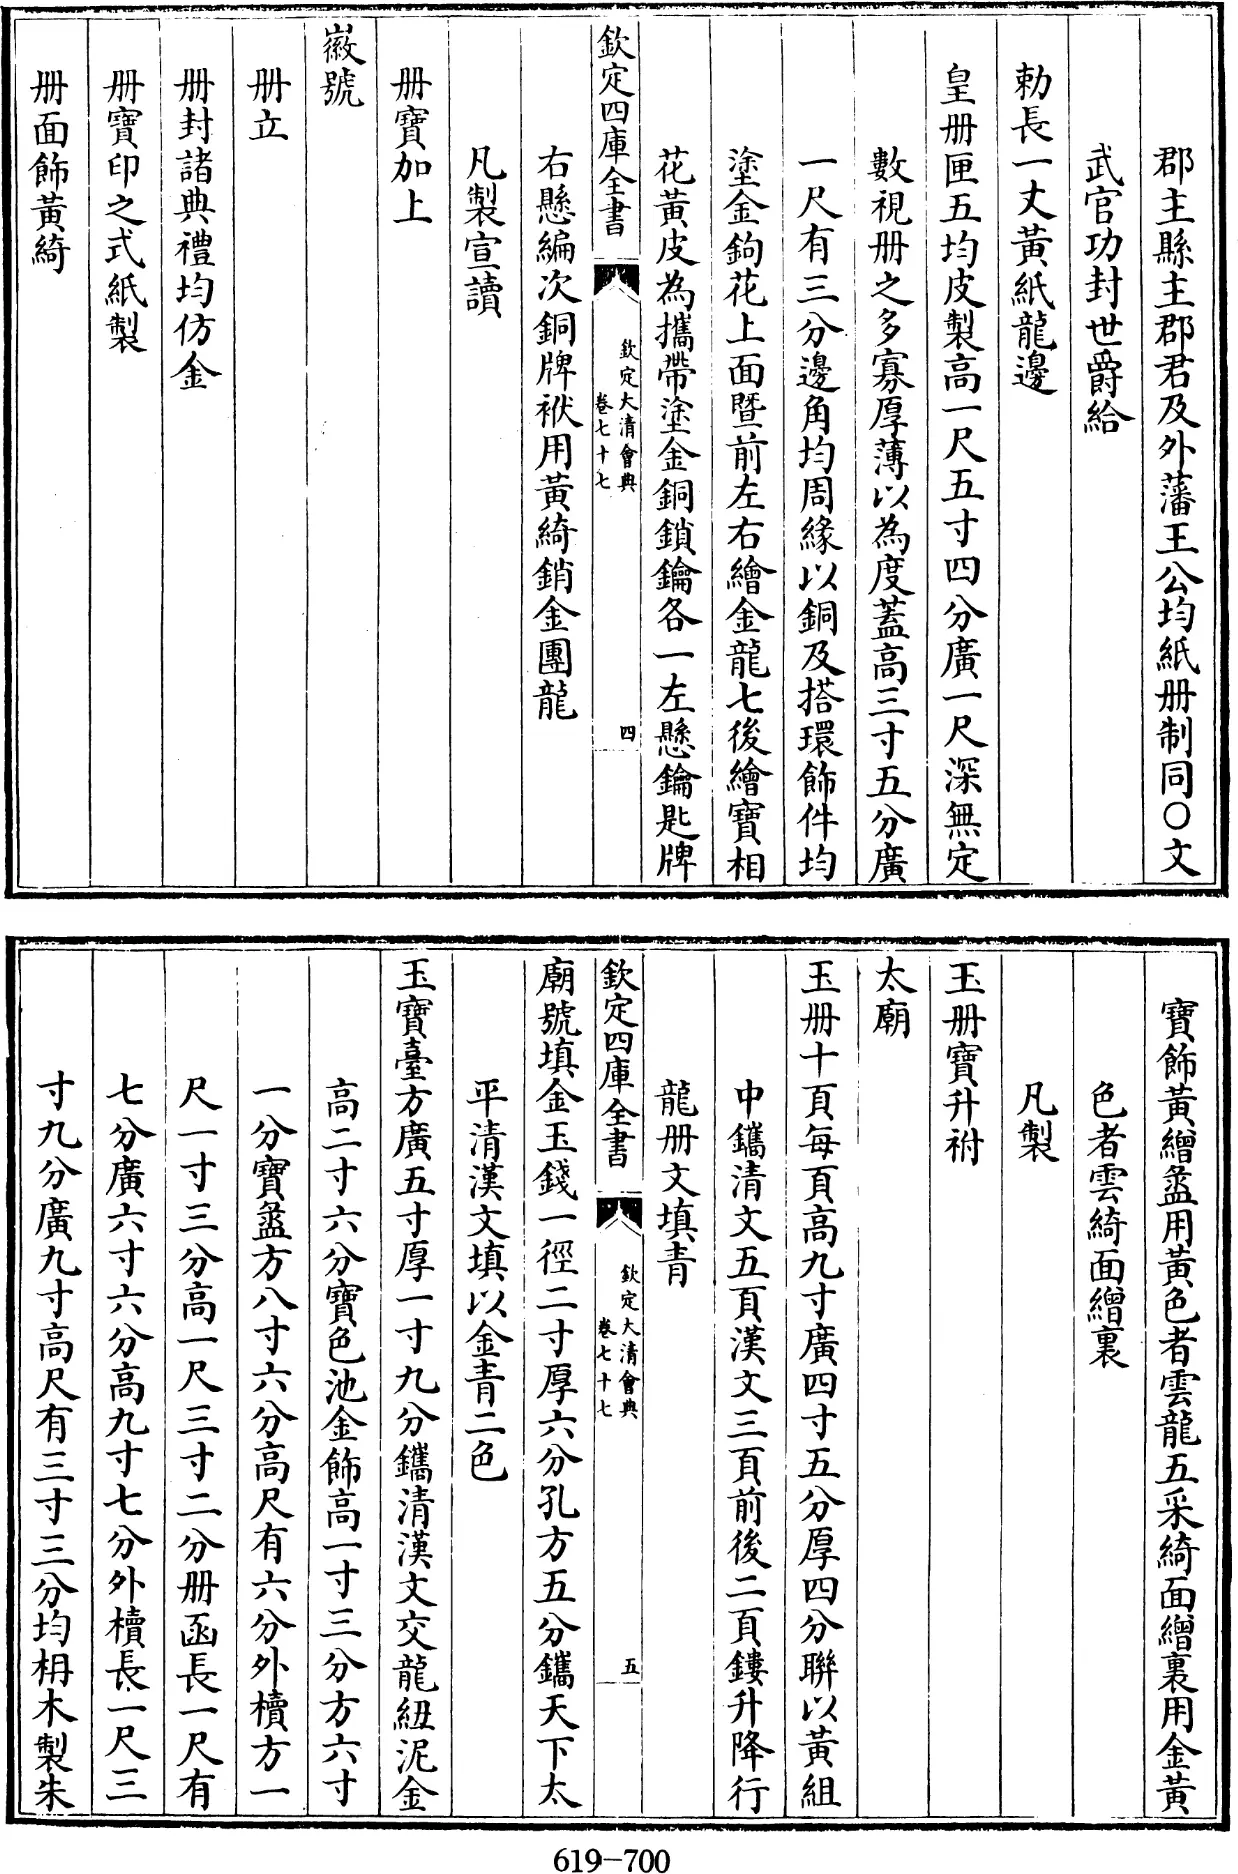 郡主縣主郡君及外藩王公均紙册制同○文
武官功封世爵給
勅長一丈黃紙龍邊
皇册匣五均皮製高一尺五寸四分廣一尺深無定
數視册之多寡厚薄以為度蓋高三寸五分廣
一尺有三分邊角均周緣以銅及搭環飾件均
塗金鉤花上面暨前左右繪金龍七後繪寶相
花黃皮為攜帶塗金銅鎖鑰各一左懸鑰匙牌
欽定四庫全書
欽定大清會典
卷七十七
四
右懸編次銅牌袱用黃綺銷金團龍
凡製宣讀
册寶加上
徽號
册立
册封諸典禮均仿金
册寶印之式紙製
册面飾黃綺
寶飾黃繒盝用黃色者雲龍五采綺面繒裏用金黃
色者雲綺面繒裏
凡製
玉册寶升祔
太廟
玉册十頁每頁高九寸廣四寸五分厚四分聯以黃組
中鐫清文五頁漢文三頁前後二頁鏤升降行
龍册文填青
欽定四庫全書
欽定大清會典
卷七十七
五
廟號填金玉錢一徑二寸厚六分孔方五分鐫天下太
平清漢文填以金青二色
玉寶臺方廣五寸厚一寸九分鐫清漢文交龍紐泥金
高二寸六分寶色池金飾高一寸三分方六寸
一分寶盝方八寸六分高尺有六分外櫝方一
尺一寸三分高一尺三寸二分册函長一尺有
七分廣六寸六分高九寸七分外櫝長一尺三
寸九分廣九寸高尺有三寸三分均枏木製朱
619-700